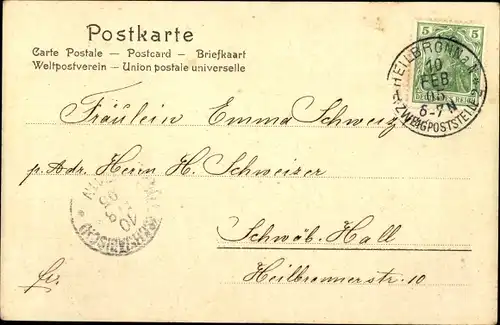 Postkarte
Carte Postale — Postcard — Briefkaart
Weltpostverein — Union postale universelle
5 5
HEILBRONN
10
FEB
05
6-7N
ZWEIGPOSTSTELLE
Fräulein Emma Schweiz
p. Adr. Herrn H. Schweizer
10
Schwäb. Hall
Heilbronnerstr. 10
fr.